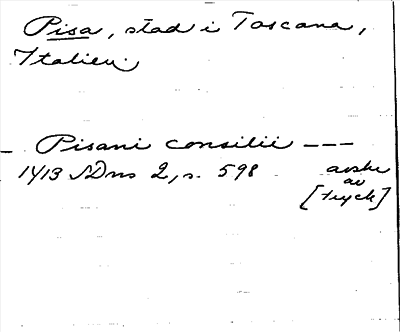 Pisa, stad i Toscana,
Italien.
– Pisani consilii ---
1413 SDns 2, s. 598 avskr
av
[tryck]